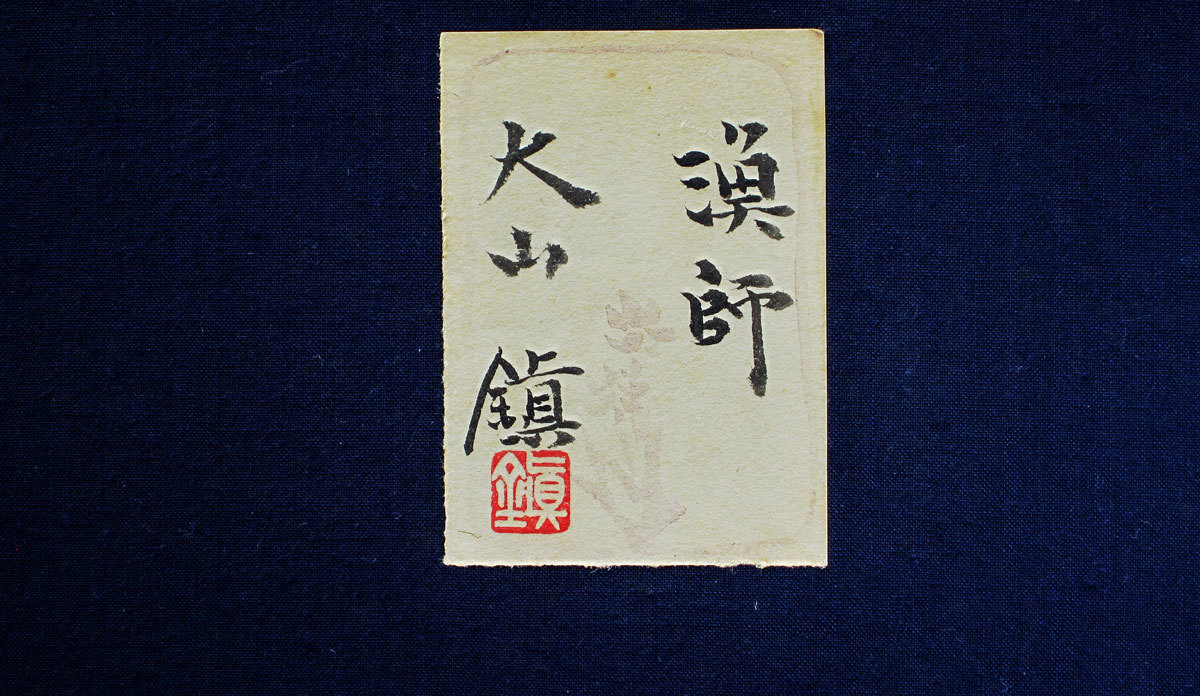 漁師
大山鎮
鎮